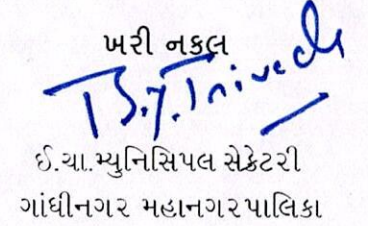 ખરી નકલ
B.J.Trivedi
ઈ.ચા.મ્યુનિસિપલ સેક્રેટરી
ગાંધીનગર મહાનગરપાલિકા